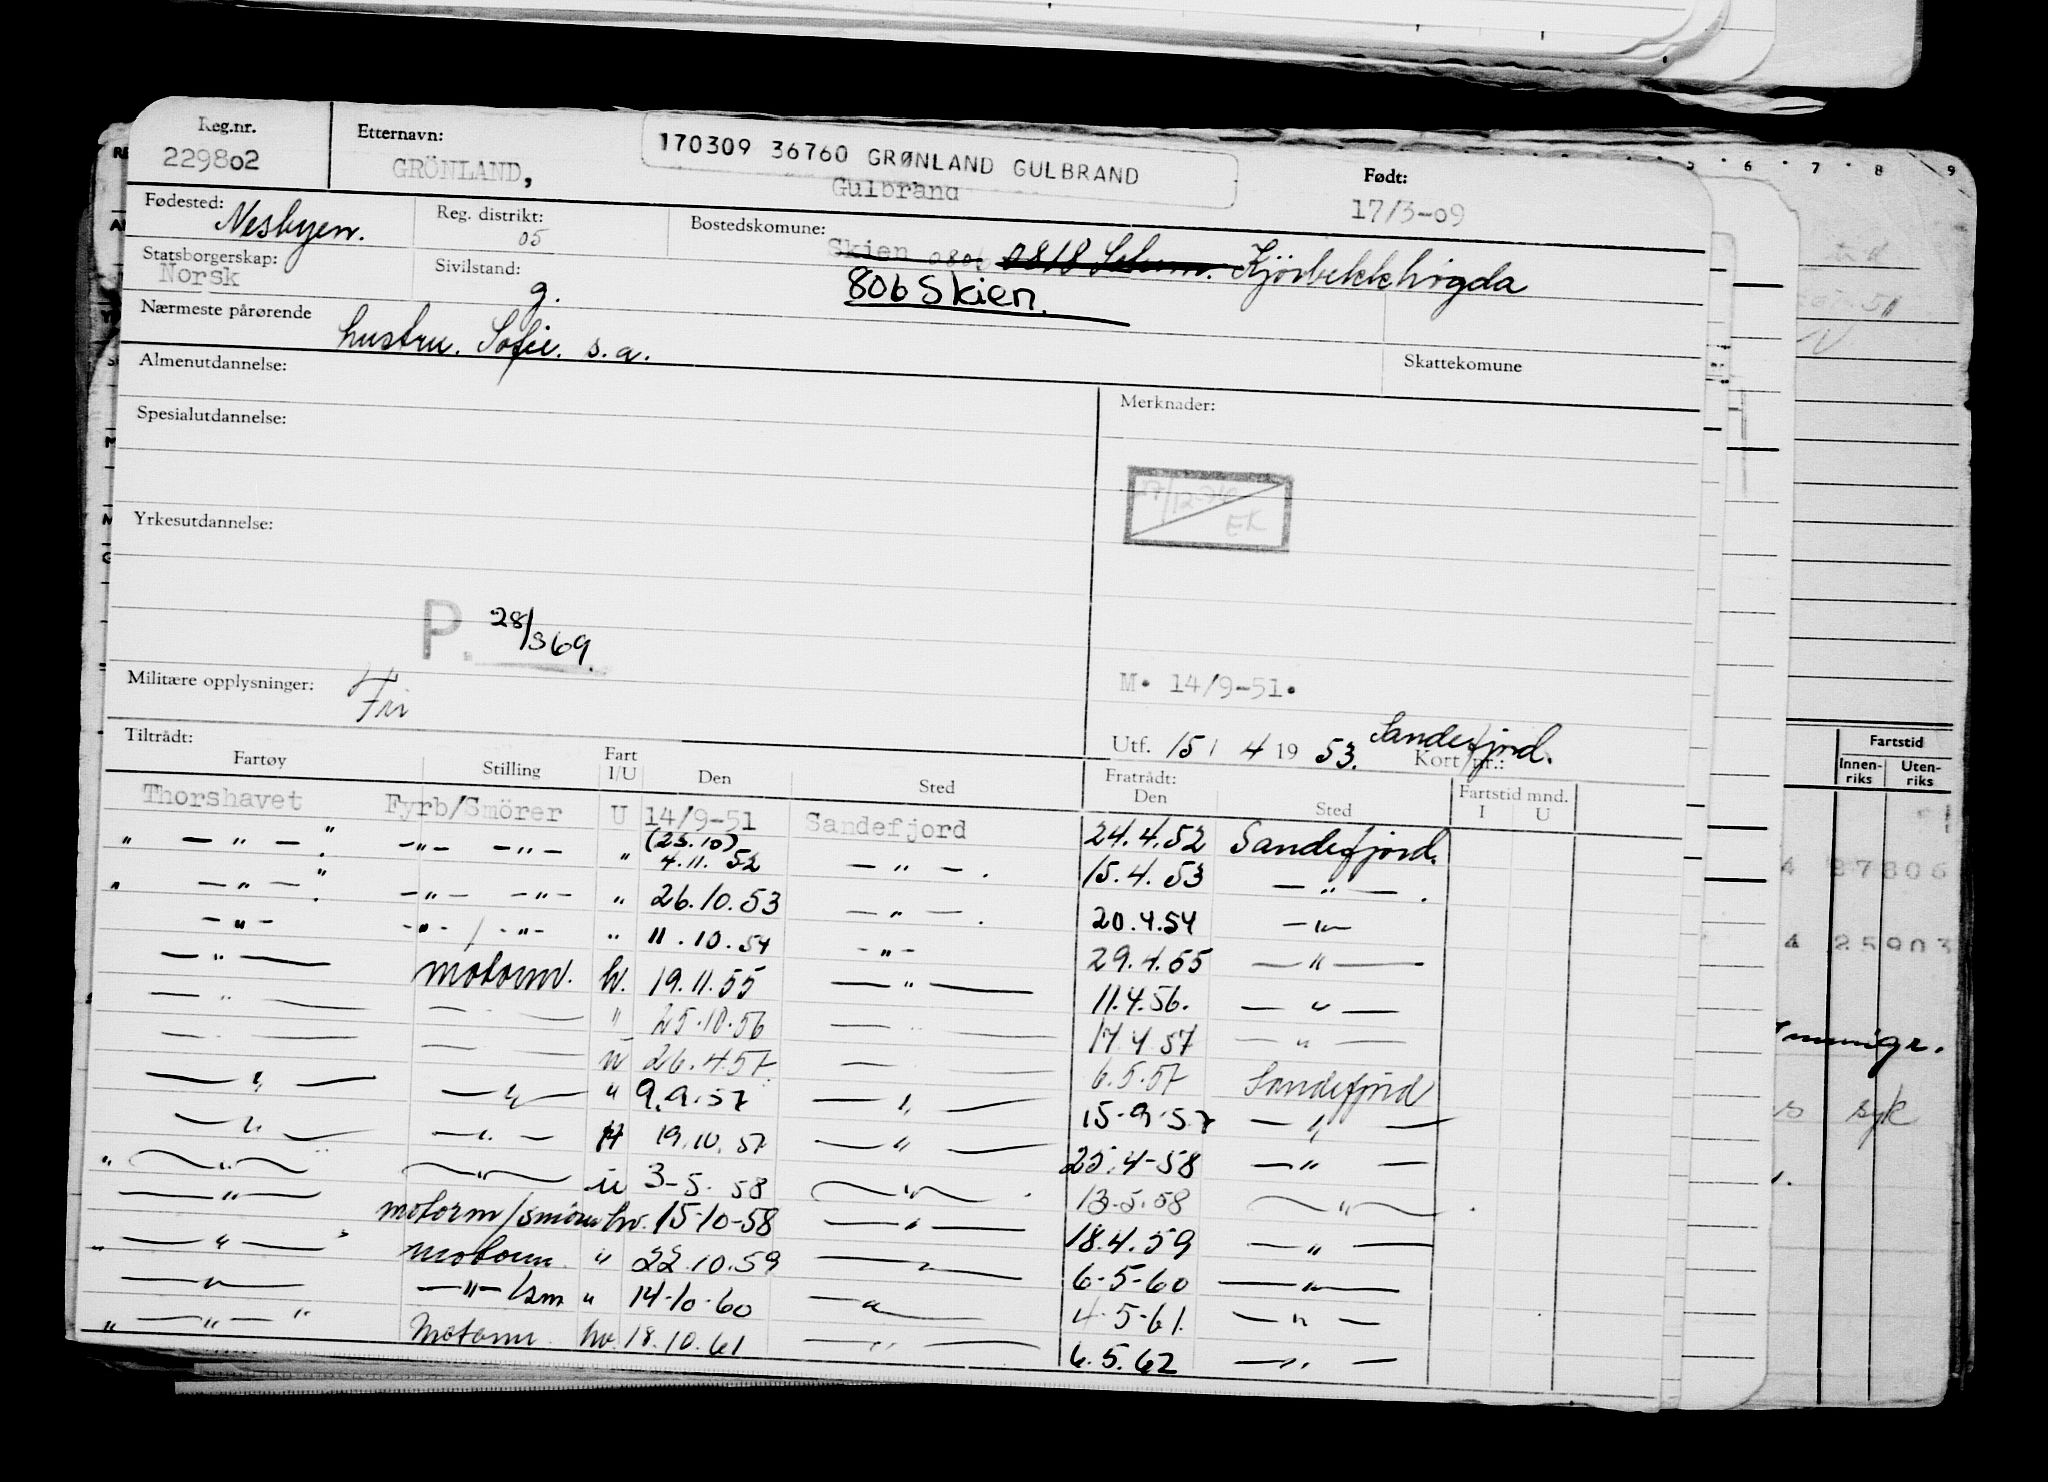 Reg.nr. Etternavn: 170309 36760 GRØNLAND GULBRAND Født:
229802 GRÖNLAND, Gulbrand 17/3-09
Fødested: Nesbyen. Reg. distrikt: 05 Bostedskomune: Skien 0806 0818 Solum. Kjörbekkhögda
Statsborgerskap: Norsk Sivilstand: g. 806 Skien.
Nærmeste pårørende hustru. Sofie. s.a.
Almenutdannelse: Skattekomune
Spesialutdannelse: Merknader:
Yrkesutdannelse:
EK
P. 28/3 69.
Militære opplysninger: Fri M. 14/9-51.
Tiltrådt: Utf. 15/ 4 19 53. Sandefjord. Kort nr.:
Fartøy Stilling Fart I/U Den Sted Fratrådt: Den Sted Fartstid mnd. I U
Thorshavet Fyrb/Smörer U 14/9-51 Sandefjord 24.4.52 Sandefjord.
" — " — " . -"- -"- " (25.10) 4.11. 52 — " — . 15.4.53 — " — .
" — " — " . -"- -"- " 26.10.53 — " — . 20.4.54 — " —
- " - -"- / -"- " 11.10.54 - " - 29.4.55 — " —
— " — motorm. hv. 19.11.55 — " — 11.4.56. — " —
— " — — " — " 25.10.56 — " — 17.4.57 — " —
— " — — " — u 26.4.57 — " — 6.5.57 Sandefjord
— " — — " — " 9.9.57 — " — 15-9-57 — " —
— " — — " — H 19.10.57 — " — 25.4-58 — " —
" — " — — " — u 3-5. 58 — " — . 13.5.58 — " — .
— " — motorm/smörer hv. 15-10-58 — " — 18.4.59 — " —
" — " — " motorm " 22.10.59 — " — 6-5-60 — " —
— " — — " — /sm " 14-10-60 — " — 4-5-61. — " —
" — " — " Motorm. hv. 18.10.61 — " — 6.5.62 — " —
6 7 8 9
Fartstid
Innen-riks Uten-riks
4 27806
4 25903
syk